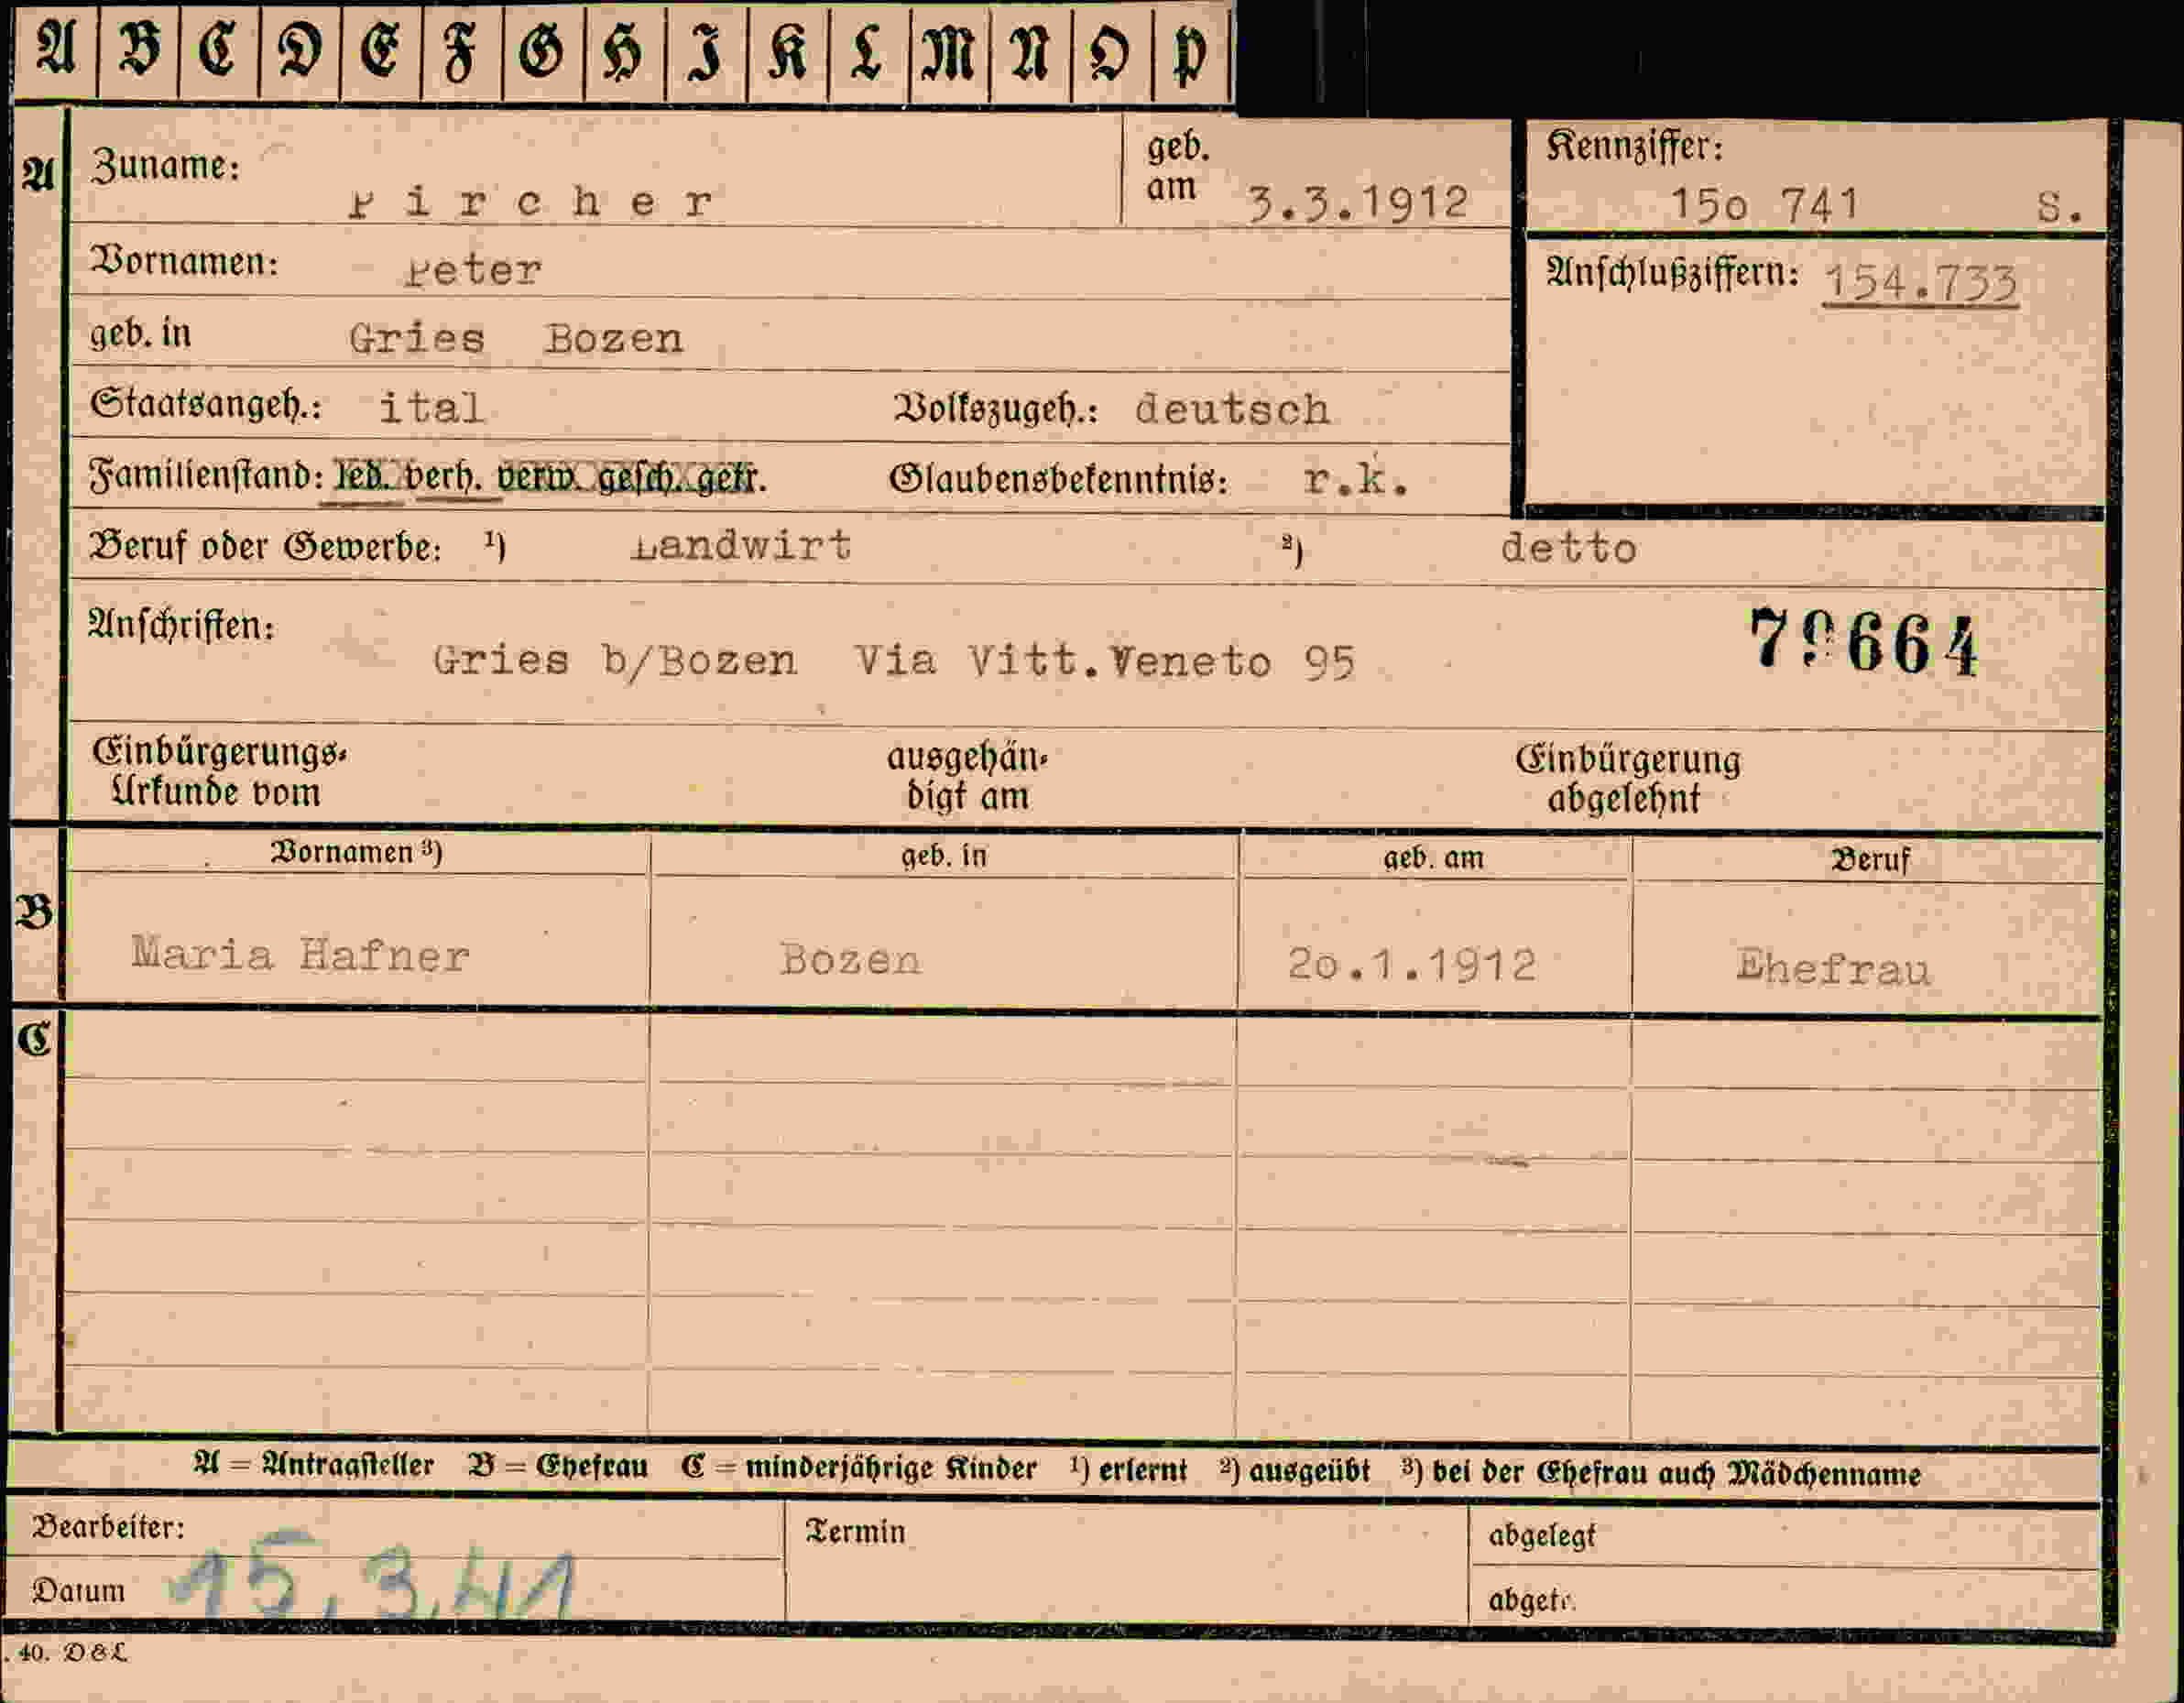 A B C D E F G H I K L M N O P
A Zuname: Pircher geb. am 3.3.1912 Kennziffer: 15o 741 S.
Vornamen: Peter Anschlußziffern: 154.733
geb. in Gries Bozen
Staatsangeh.: ital Volkszugeh.: deutsch
Familienstand: led. verh. verw. gesch. getr. Glaubensbekenntnis: r.k.
Beruf oder Gewerbe: ¹) Landwirt ²) detto
Anschriften: Gries b/Bozen Via Vitt.Veneto 95
Einbürgerungs- ausgehän- Einbürgerung
Urkunde vom digt am abgelehnt
Vornamen ³) geb. in geb. am Beruf
B Maria Hafner Bozen 2o.1.1912 Ehefrau
C
A = Antragsteller B = Ehefrau C = minderjährige Kinder ¹) erlernt ²) ausgeübt ³) bei der Ehefrau auch Mädchenname
Bearbeiter: Termin abgelegt
Datum 15.3.41 abgetr.
. 40. D&L